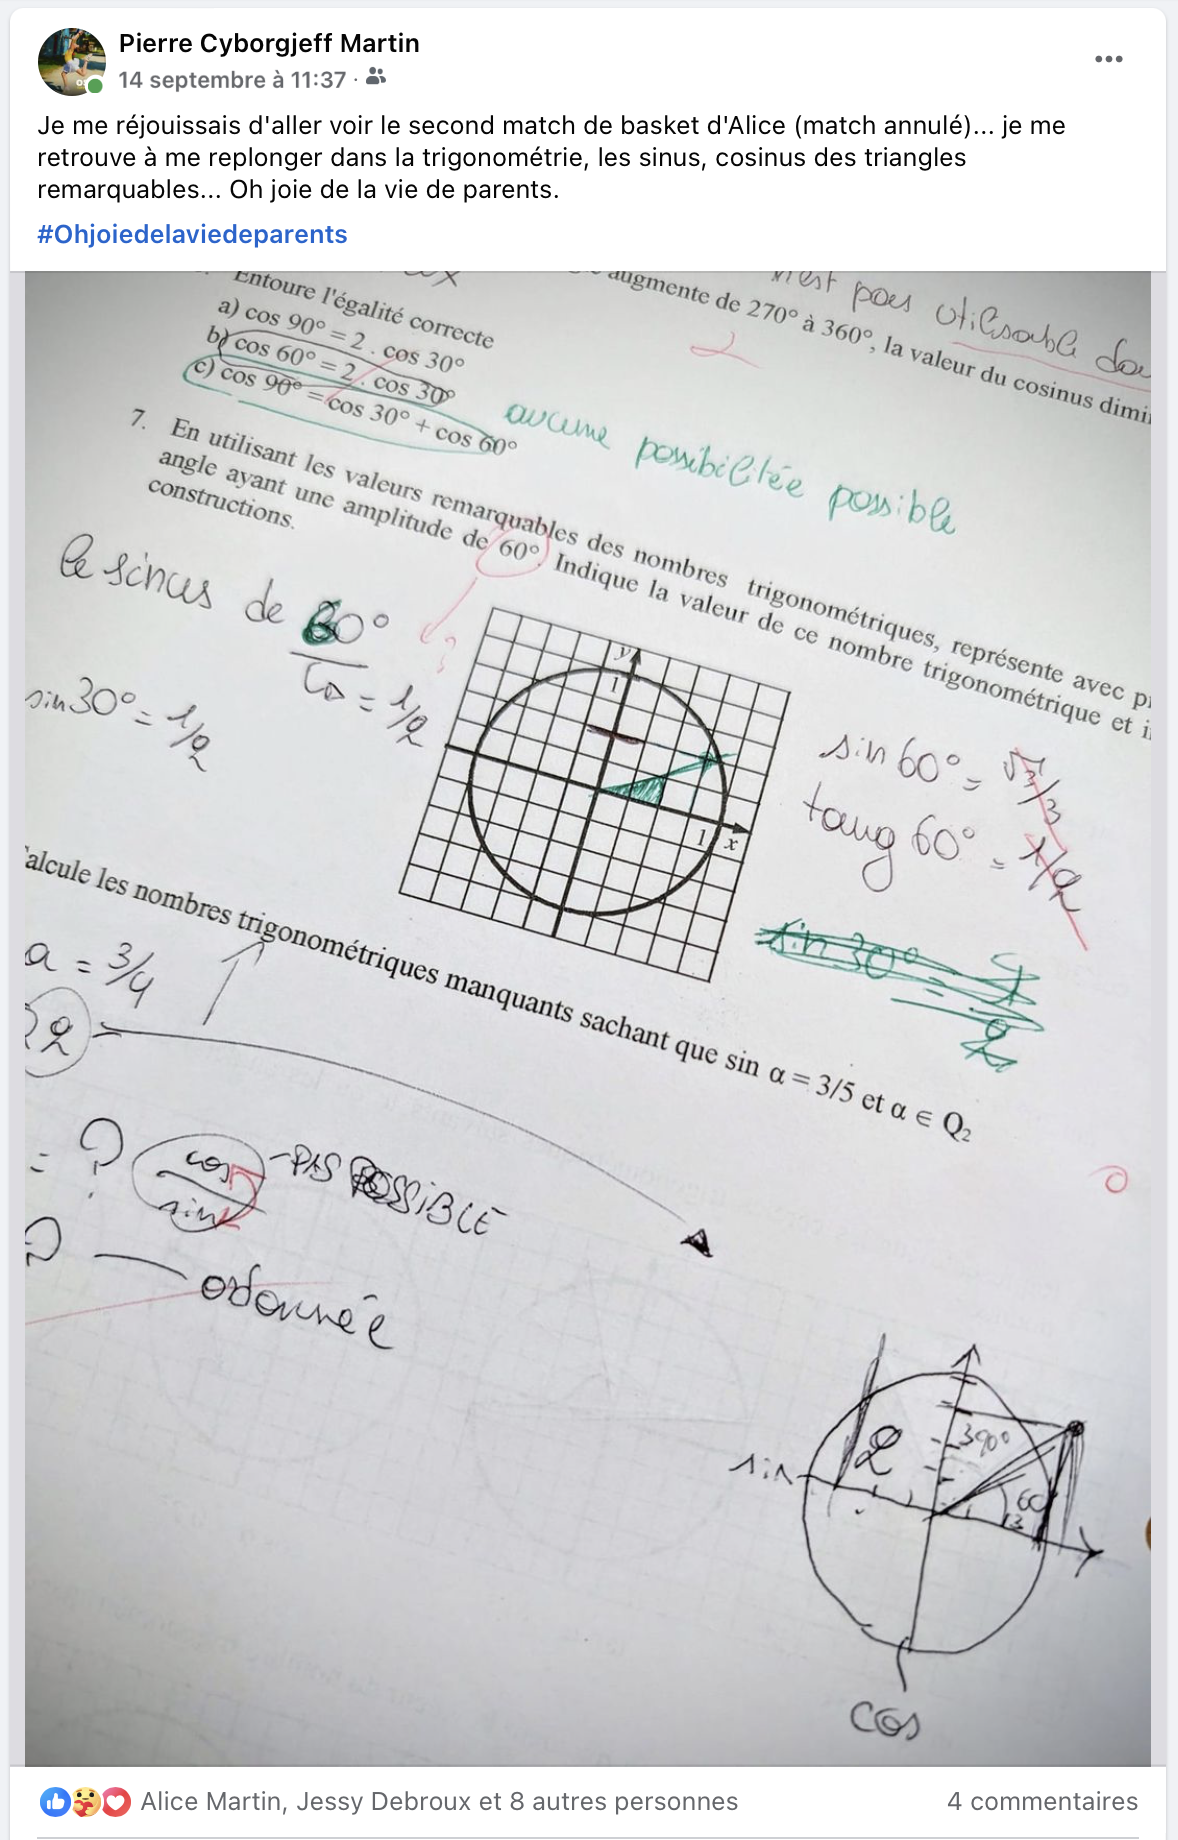 Pierre Cyborgjeff Martin
14 septembre à 11:37 ·
Je me réjouissais d'aller voir le second match de basket d'Alice (match annulé)... je me
retrouve à me replonger dans la trigonométrie, les sinus, cosinus des triangles
remarquables... Oh joie de la vie de parents.
#Ohjoiedelaviedeparents
n'est pas utilisable
augmente de 270° à 360°, la valeur du cosinus dimi
Entoure l'égalité correcte
a) cos 90° = 2 . cos 30°
b) cos 60° = 2 . cos 30°
c) cos 90° = cos 30° + cos 60°
aucune possibilitée possible
7. En utilisant les valeurs remarquables des nombres trigonométriques, représente avec p
angle ayant une amplitude de 60°. Indique la valeur de ce nombre trigonométrique et i
constructions.
le sinus de 60°
= 1/2
?
sin 30° = 1/2
y
1
1 x
sin 60° = √3/3
tang 60° = 1/2
sin 30° = 1/2
alcule les nombres trigonométriques manquants sachant que sin α = 3/5 et α ∈ Q2
a = 3/4
2
= ? cos/sin - PAS POSSIBLE
? — ordonnée
2
390°
sin
60
cos
Alice Martin, Jessy Debroux et 8 autres personnes
4 commentaires